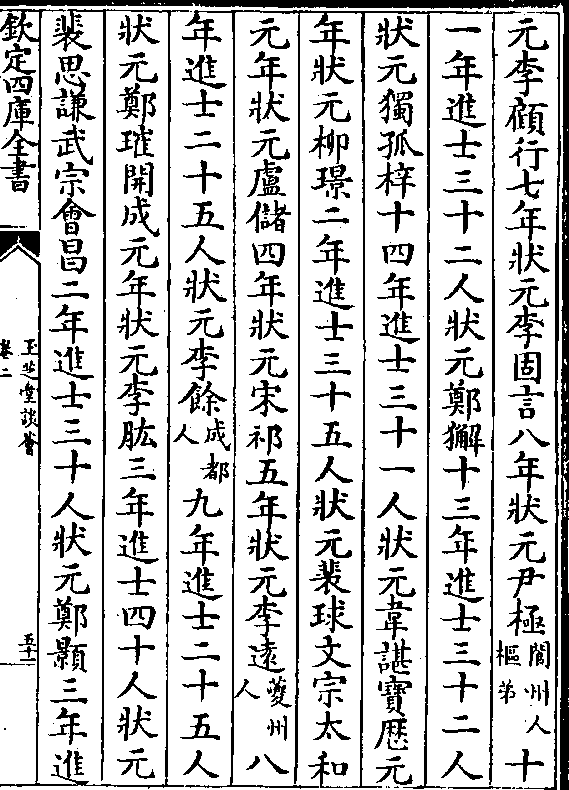 元李顧行七年狀元李固言八年狀元尹極閬州人樞弟十
一年進士三十二人狀元鄭獬十三年進士三十二人
狀元獨孤梓十四年進士三十一人狀元韋諶寶曆元
年狀元柳璟二年進士三十五人狀元裴球文宗太和
元年狀元盧儲四年狀元宋祁五年狀元李遠夔州人八
年進士二十五人狀元李餘成都人九年進士二十五人
狀元鄭璀開成元年狀元李肱三年進士四十人狀元
裴思謙武宗會昌二年進士三十人狀元鄭顥三年進
欽定四庫全書
玉芝堂談薈
卷二
五十一